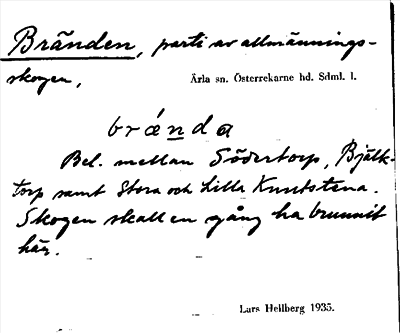 Bränden, parti av allmännings-
skogen,
Ärla sn. Österrekarne hd. Sdml. l.
bránda
Bel. mellan Södertorp, Bjälk-
torp samt Stora och Lilla Knutstena.
Skogen skall en gång ha brunnit
här.
Lars Hellberg 1935.